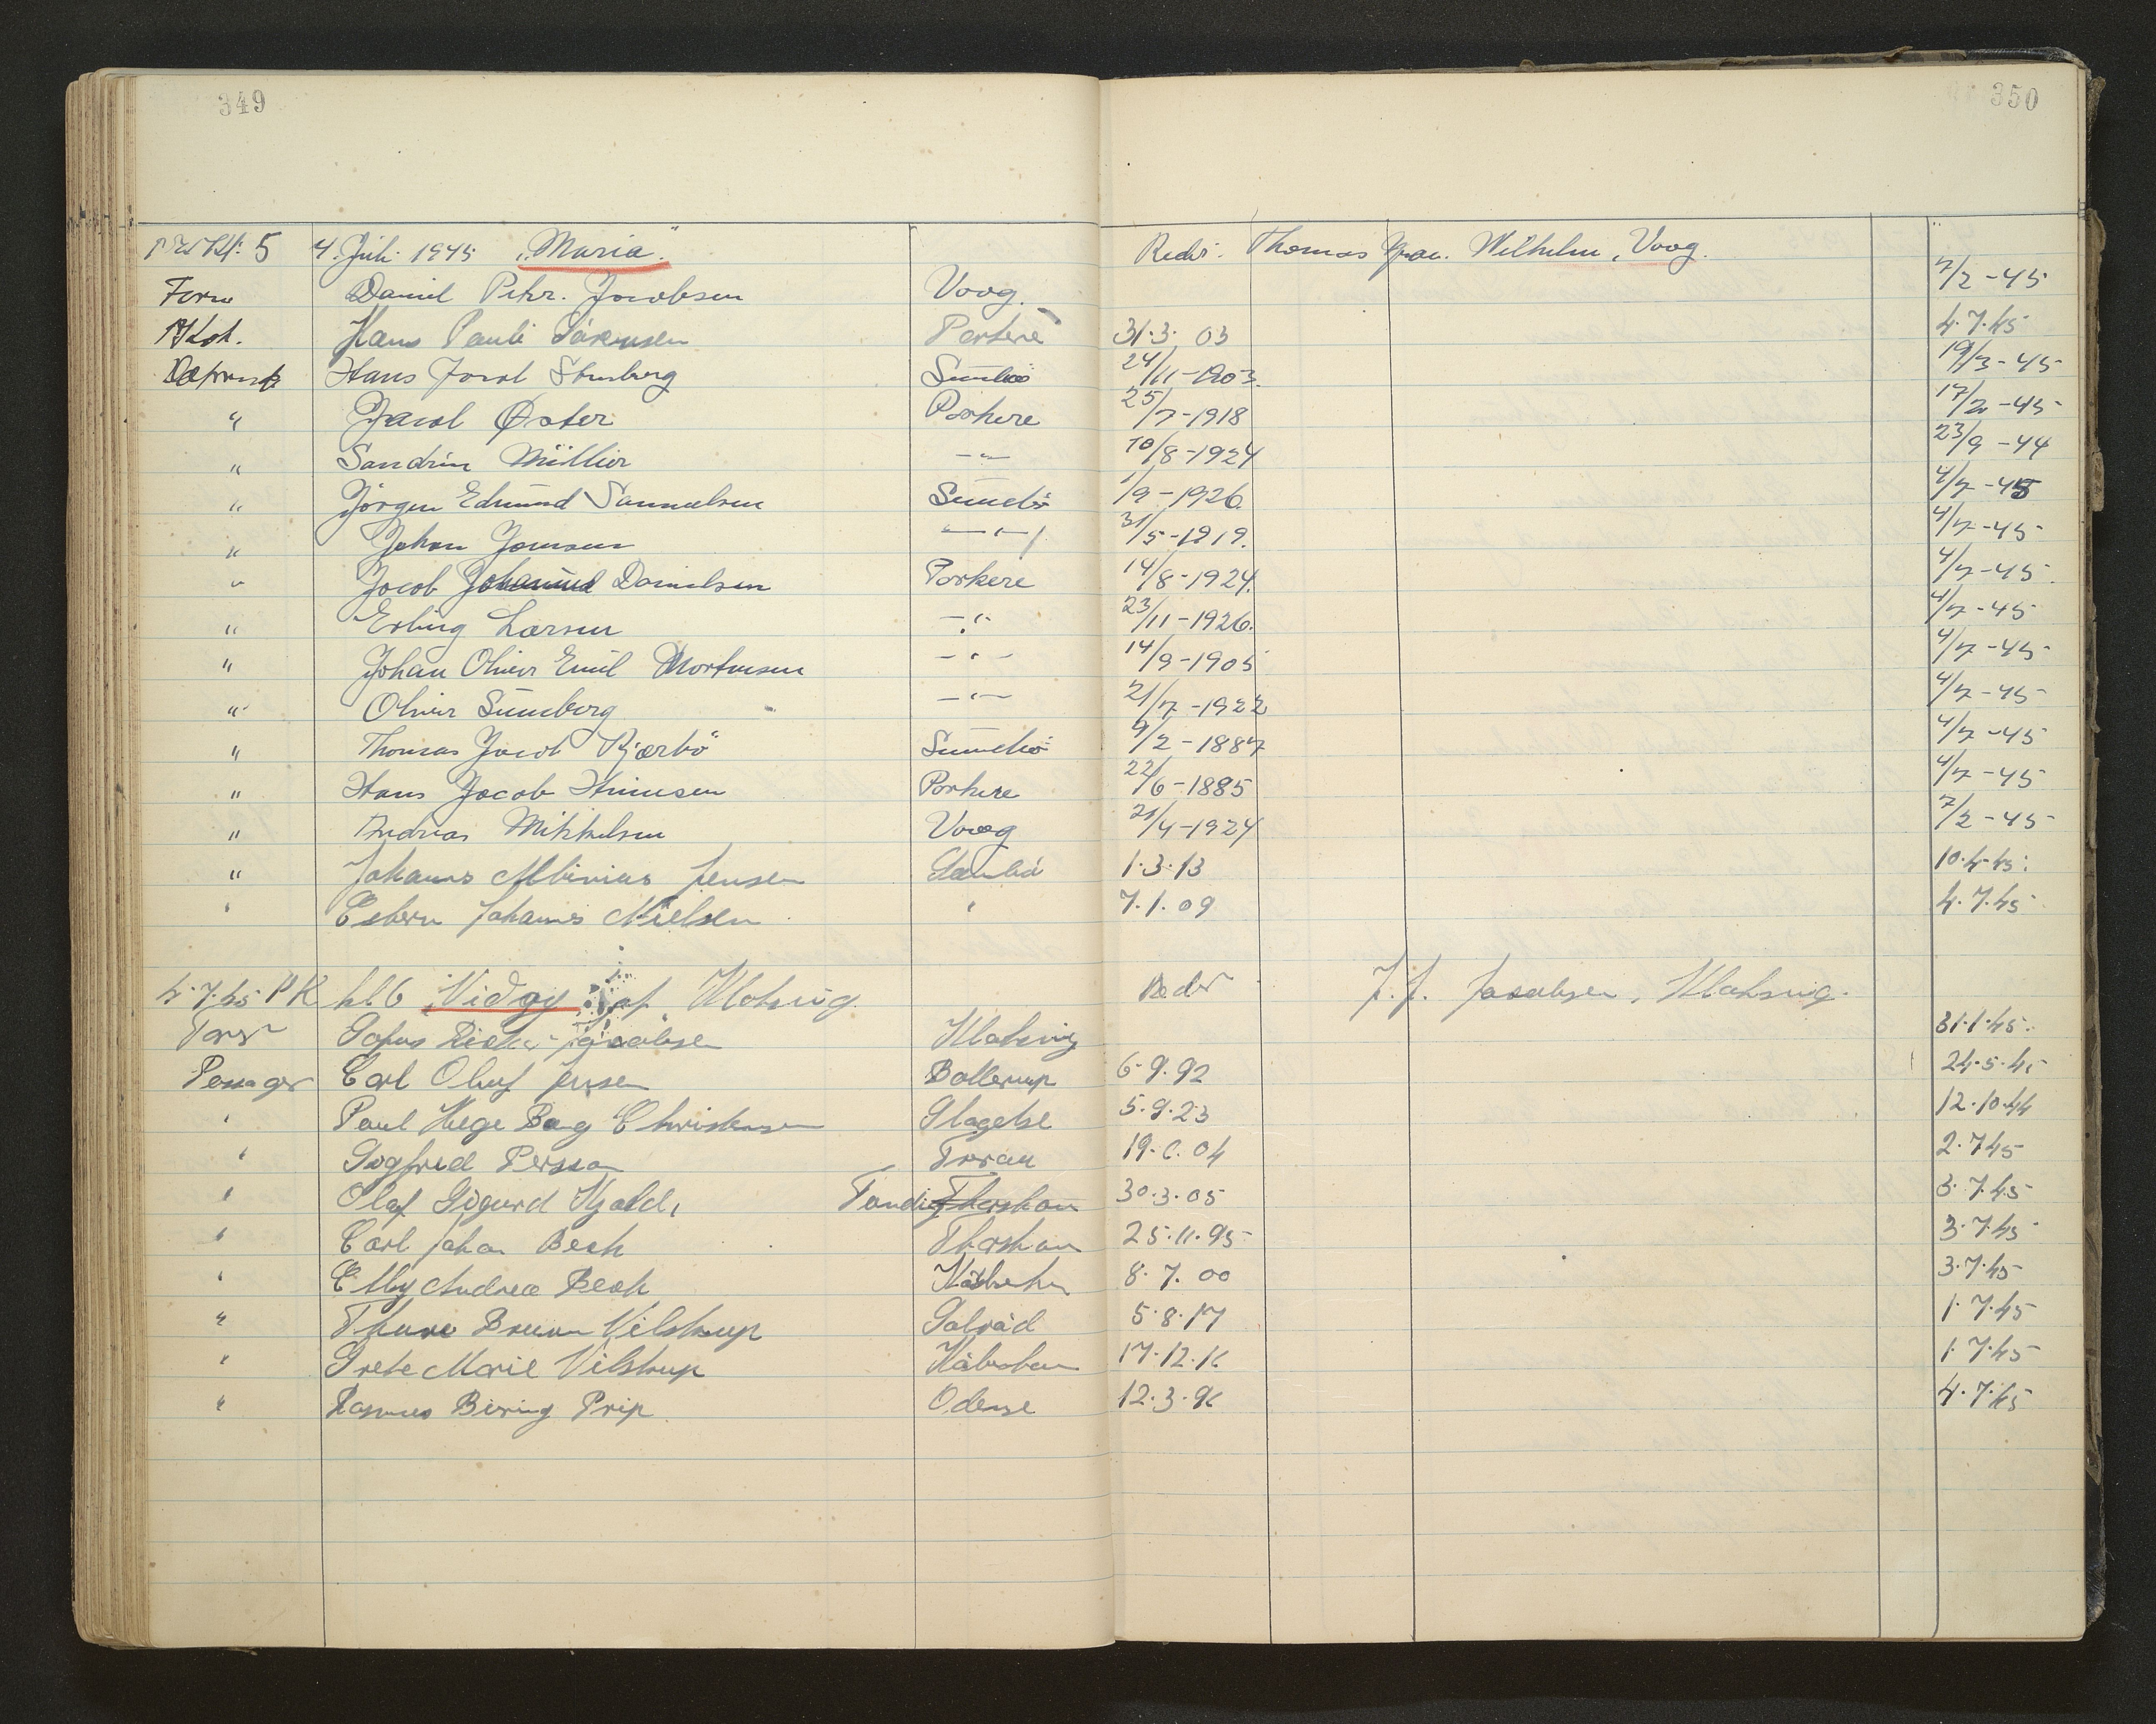 349
350
Kl. 5 4. Juli 1945 "Maria" Reder. Thomas Wilhelm, Vaag.
Daniel Petr. Jacobsen Vaag. 7/2-45
Hans Pauli Porkere 31.3.03 4.7.45
Hans Jacob Stenberg Sumbö 24/11-1903. 19/3-45
" Jacob Øster Porkere 25/7-1918 17/2-45
" Müller -"- 10/8-1924 23/9-44
" Jörgen Edmund Samuelsen Sumbö 1/9-1926. 4/7-45
" Johan Joensen -"- 31/5-1919. 4/7-45
" Jacob Danielsen Porkere 14/8-1924. 4/7-45
" Erling Larsen -"- 23/11-1926. 4/7-45
" Johan Oliver Emil Mortensen -"- 14/9-1905 4/7-45
" Oliver Sumberg -"- 21/7-1922 4/7-45
" Thomas Jacob Kjærbö Sumbö 9/2-1887 4/7-45
" Hans Jacob Porkere 22/6-1885 4/7-45
" Andrias Mikkelsen Vaag 21/4-1924 7/2-45
" Johannes Albinius Jensen 1.3.13 10.4.45
" Esbern Johannes Nielsen " 7.1.09 4.7.45
4.7.45 P K kl 6 "Vidoy" af Klaksvig Reder J. J. Jacobsen, Klaksvig.
Jacobsen Klaksvig 31.1.45.
Passager Carl Oluf Jensen Ballerup 6.9.92 24.5.45
" Paul Hege Bag Christensen Slagelse 5.9.23 12.10.44
" Sigfred Persson 19.6.04 2.7.45
" Olaf Sigurd 30.3.05 3.7.45
" Carl Johan Beck Thorshavn 25.11.95 3.7.45
" Elly Andrea Beck 8.7.00 3.7.45
" Thure Bruun Vilstrup Solrød 5.8.17 1.7.45
" Grete Marie Vilstrup 17.12.16 1.7.45
" Rasmus Biering Prip Odense 12.3.96 4.7.45